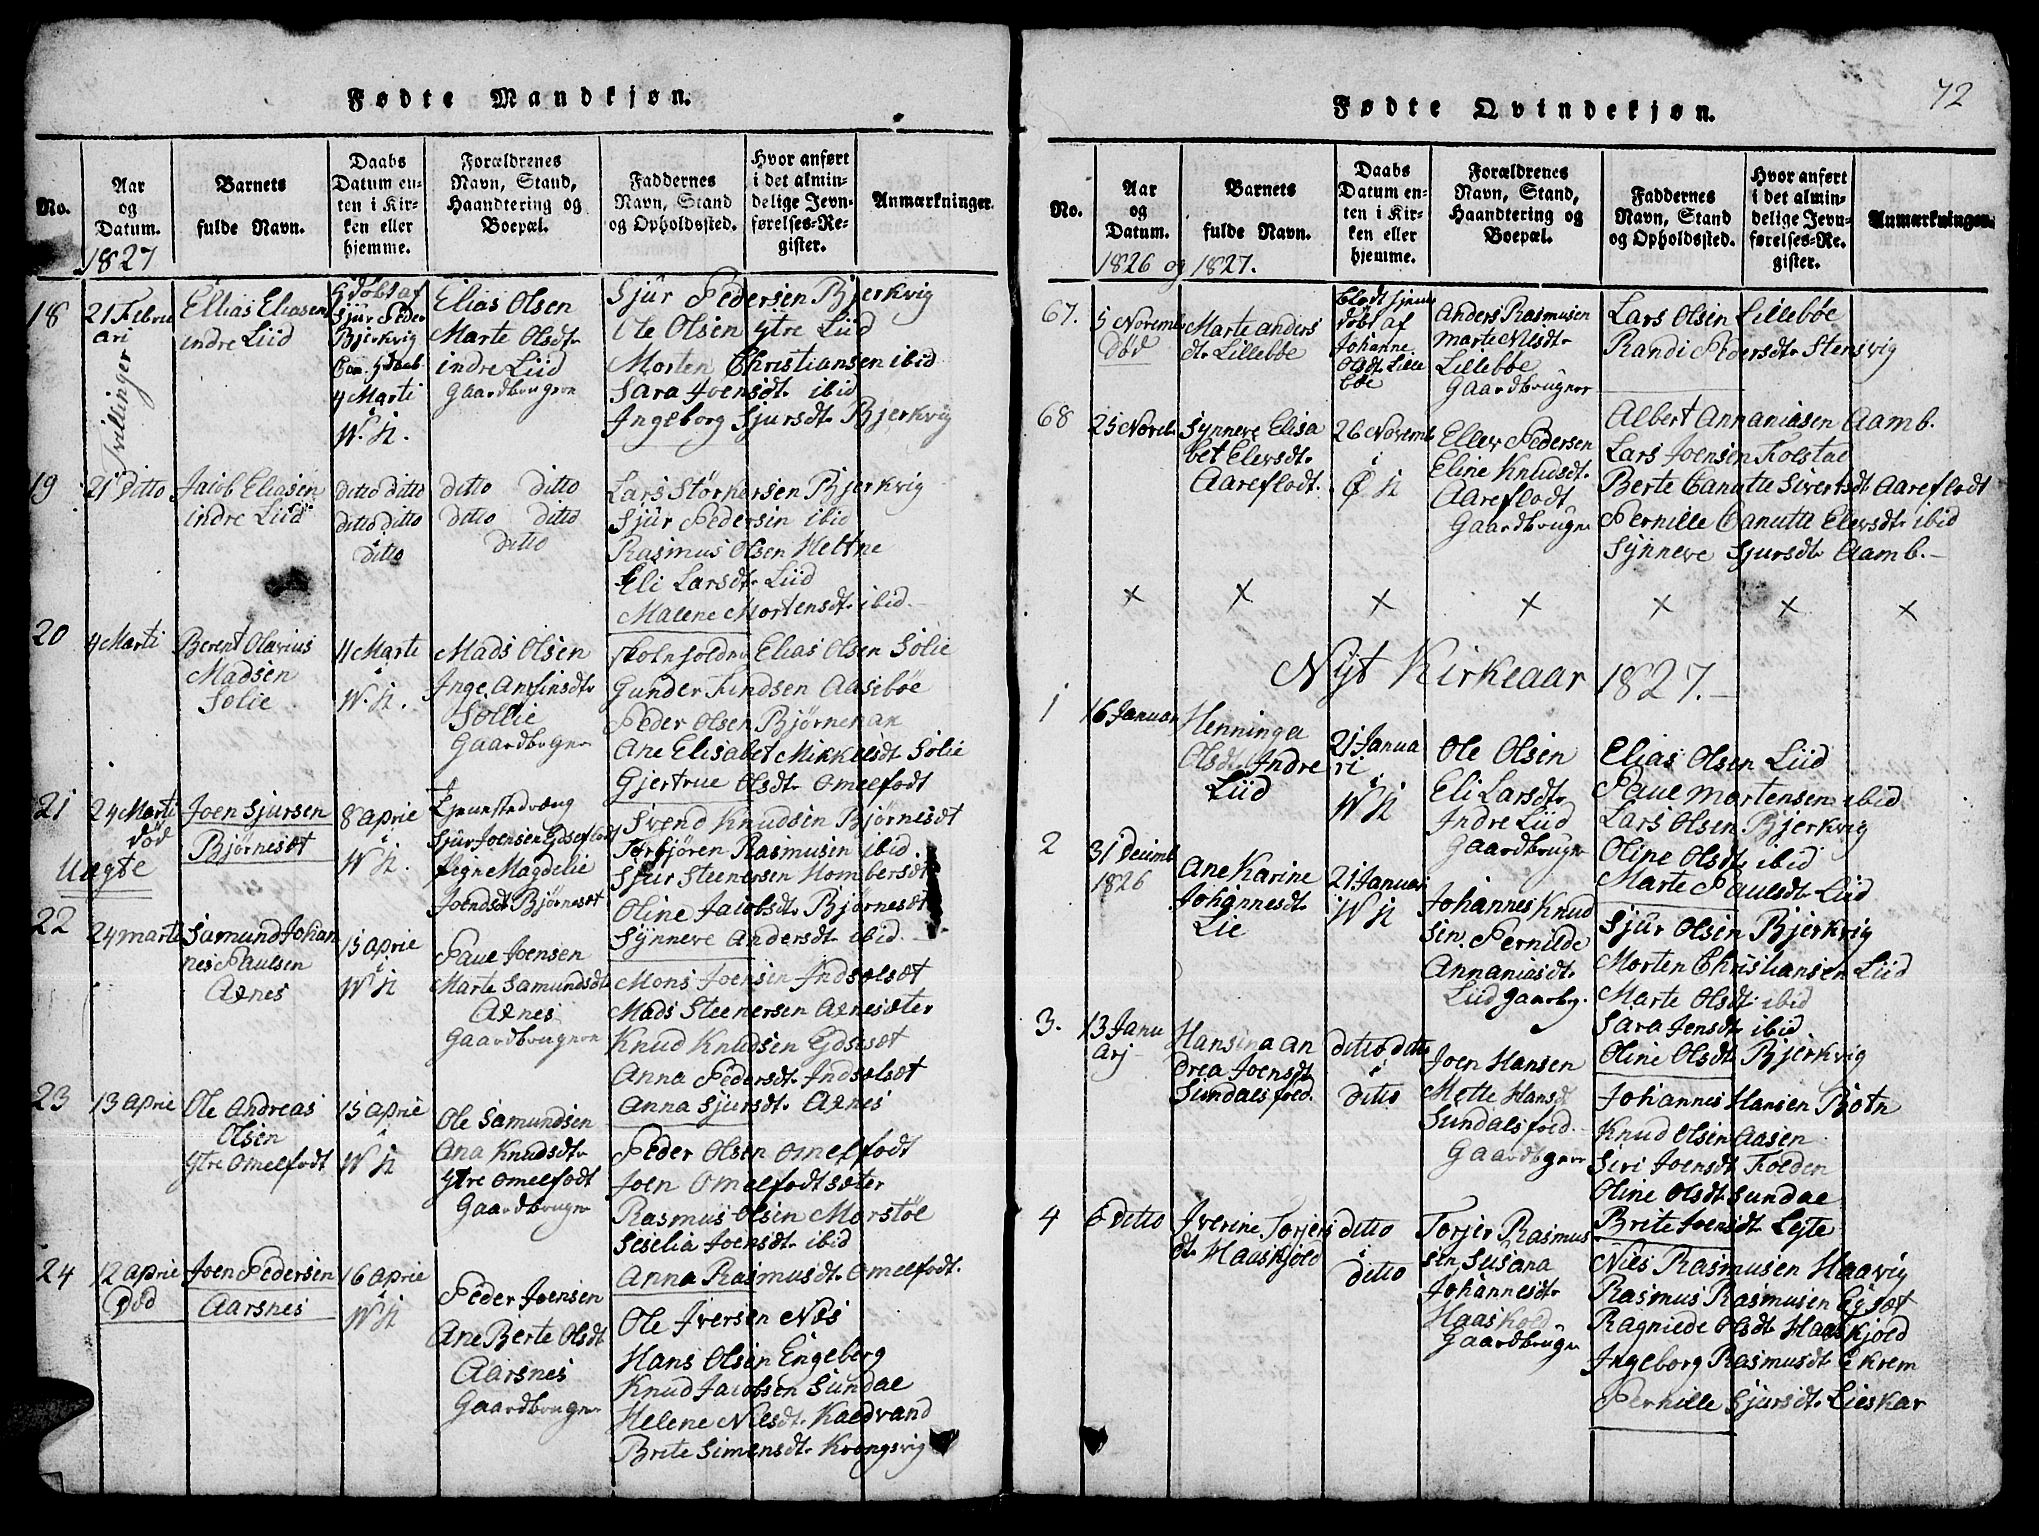 Fødte Mandkjøn.
No.
Aar
og
Datum.
1827
Barnets
fulde Navn.
Daabs
Datum en-
ten i Kir-
ken eller
hjemme.
Forældrenes
Navn, Stand,
Haandtering og
Boepæl.
Faddernes
Navn, Stand
og Opholdssted.
Hvor anført
i det almin-
delige Jevn-
førelses-Re-
gister.
Anmærkninger.
18
21 Febru
ari
Tvillinger
Ellias Eliasen
indre Liid
døbt af
Sjur Peder
Bjerkvig
4 Marti
i
W. K.
Elias Olsen
Marte Olsdt.
indre Liid
Gaardbrugere
Sjur Pedersen Bjerkvig
Ole Olsen ytre Liid
Morten Christiansen ibid
Sara Joensdt. ibid
Ingeborg Sjursdt. Bjerkvig
19
21 Ditto
Jacob Eliasen
indre Liid
ditto ditto
ditto ditto
ditto
ditto ditto
ditto ditto
ditto
Lars Størkersen Bjerkvig
Sjur Pedersen ibid
Rasmus Olsen Heltne
Eli Larsdt. Liid
Malene Mortensdt. ibid.
20
4 Marti
Berent Olavius
Madsen
Solie
11 Marte
i
W. K.
Mads Olsen
Inge Anfinsdt.
Sollie
Gaardbogner
Elias Olsen Solie
Gunder Findsen Aasebøe
Peder Olsen Bjørnenak
Ane Elisabet Mikkelsdt. Solie
Gjertrue Olsdt. Omelfodt
21
24 Marti
død
Uægte
Joen Sjursen
Bjørnesæt
8 Aprie
i
W K.
Sjur Joensen
Pigne Magdelie
Joensdt Bjørnesæt
Svend Knudsen Bjørnesæt
Torbjøren Rasmusen ibid.
Sjur Steenersen Hombersdt
Oline Jacobsdt. Bjørnesæt
Synneve Andersdt. ibid.
22
24 marte
Samund Johan
nes Paulsen
Axnes
15 aprie
i
W K
Paue Joensen
Marte Samundsdt
Axnes
Gaardbrugere
Mons Joensen Indselsæt
Mads Steenersen Axnesæter
Knud Knudsen Ejdsesæt
Anna Pedersdt. Indselsæt
Anna Sjursdt. Axnes
23
13 aprie
Ole Andreas
Olsen
ytre Omelfodt
15 aprie
i
W K
Ole Samundsen
Ana Knudsdt.
ytre Omelfodt
Gaardbruger
Peder Olsen Omelfodt
Joen Omelfodtsæter
Rasmus Olsen Morstøl
Seselia Joensdt. ibid
Anna Rasmusdt. Omelfodt.
24
12 aprie
Død
Joen Pedersen
Aarsnes
16 aprie
i
W K
Peder Joensen
Ane Berte Olsdt
Aarsnes
Gaardbruger
Ole Iversen Næs
Hans Olsen Engeberg
Knud Jacobsen Sundae
Helene Nilsdt. Kaldvand
Brite Simensdt. Krongsvig
Fødte Qvindekjøn.
72
No.
Aar
og
Datum.
1826 og 1827.
Barnets
fulde Navn.
Daabs
Datum en-
ten i Kir-
ken eller
hjemme.
Forældrenes
Navn, Stand,
Haandtering og
Boepæl.
Faddernes
Navn, Stand
og Opholdssted.
Hvor anført
i det almin-
delige Jevn-
førelses-Re-
gister.
Anmærkninger.
67.
5 Novemb
død
Marte Anders
dt. Lillebøe
døbt af
Johanne
Olsdt. Lille
bøe
Anders Rasmusen
Marte Nilsdt.
Lillebøe
Gaardbruger
Lars Olsen Lillebøe
Randi Pedersdt. Stensvig
68
25 Novem.
Synneve Elisa
bet Elevsdt.
Aareflodt.
26 Novemb
i
Ø K
Ellev Pedersen
Eline Knudsdt.
Aareflodt
Gaardbruger
Albert Annaniasen Aamb.
Lars Joensen Kolstae
Berte Canutte Sivertsdt. Aareflodt
Pernille Canutte Elevsdt. ibid
Synneve Sjursdt. Aamb.
x x x x x x x
Nyt Kirkeaar 1827.
1
16 Januar
Henninga
Olsdt. Indre
Liid
21 Janua
ri
i
W K
Ole Olsen
Eli Larsdt.
Indre Liid
Gaardbruger
Elias Olsen Liid
Paue Mortensen ibid
Lars Olsen Bjerkvig
Oline Olsdt. ibid
Marte Paulsdt. Liid
2
31 Decemb
1826
Ane Karine
Johannesdt.
Lie
21 Januari
i
W K
Johannes Knud
sen. Pernilde
Annaniasdt.
Liid Gaarbg.
Sjur Olsen Bjerkvig
Morten Christiansen Liid
Marte Olsdt. ibid
Sara Jensdt. ibid.
Oline Olsdt. Bjerkvig
3.
13 Janu
arj
Hansina An
drea Joensdt
Sundalsfold.
ditto ditto
i
ditto
Joen Hansen
Mette Hansdt
Sundalsfold.
Gaardbgner
Johannes Hansen Botn
Knud Olsen Aasen
Siri Joensdt. Folden
Oline Olsdt. Sundae
Brite Joensdt. Lejte
4
6 Ditto
Iverine Torjers
dt. Haaskjold
ditto
i
ditto
Torjer Rasmus
sen Susana
Johannesdt.
Haaskold
Gaardbruger
Niels Rasmusen Haavig
Rasmus Rasmusen Egsæt
Ragniede Olsdt. Haaskjold
Ingeborg Rasmusdt. Ekrem
Pernille Sjursdt. Lieskar